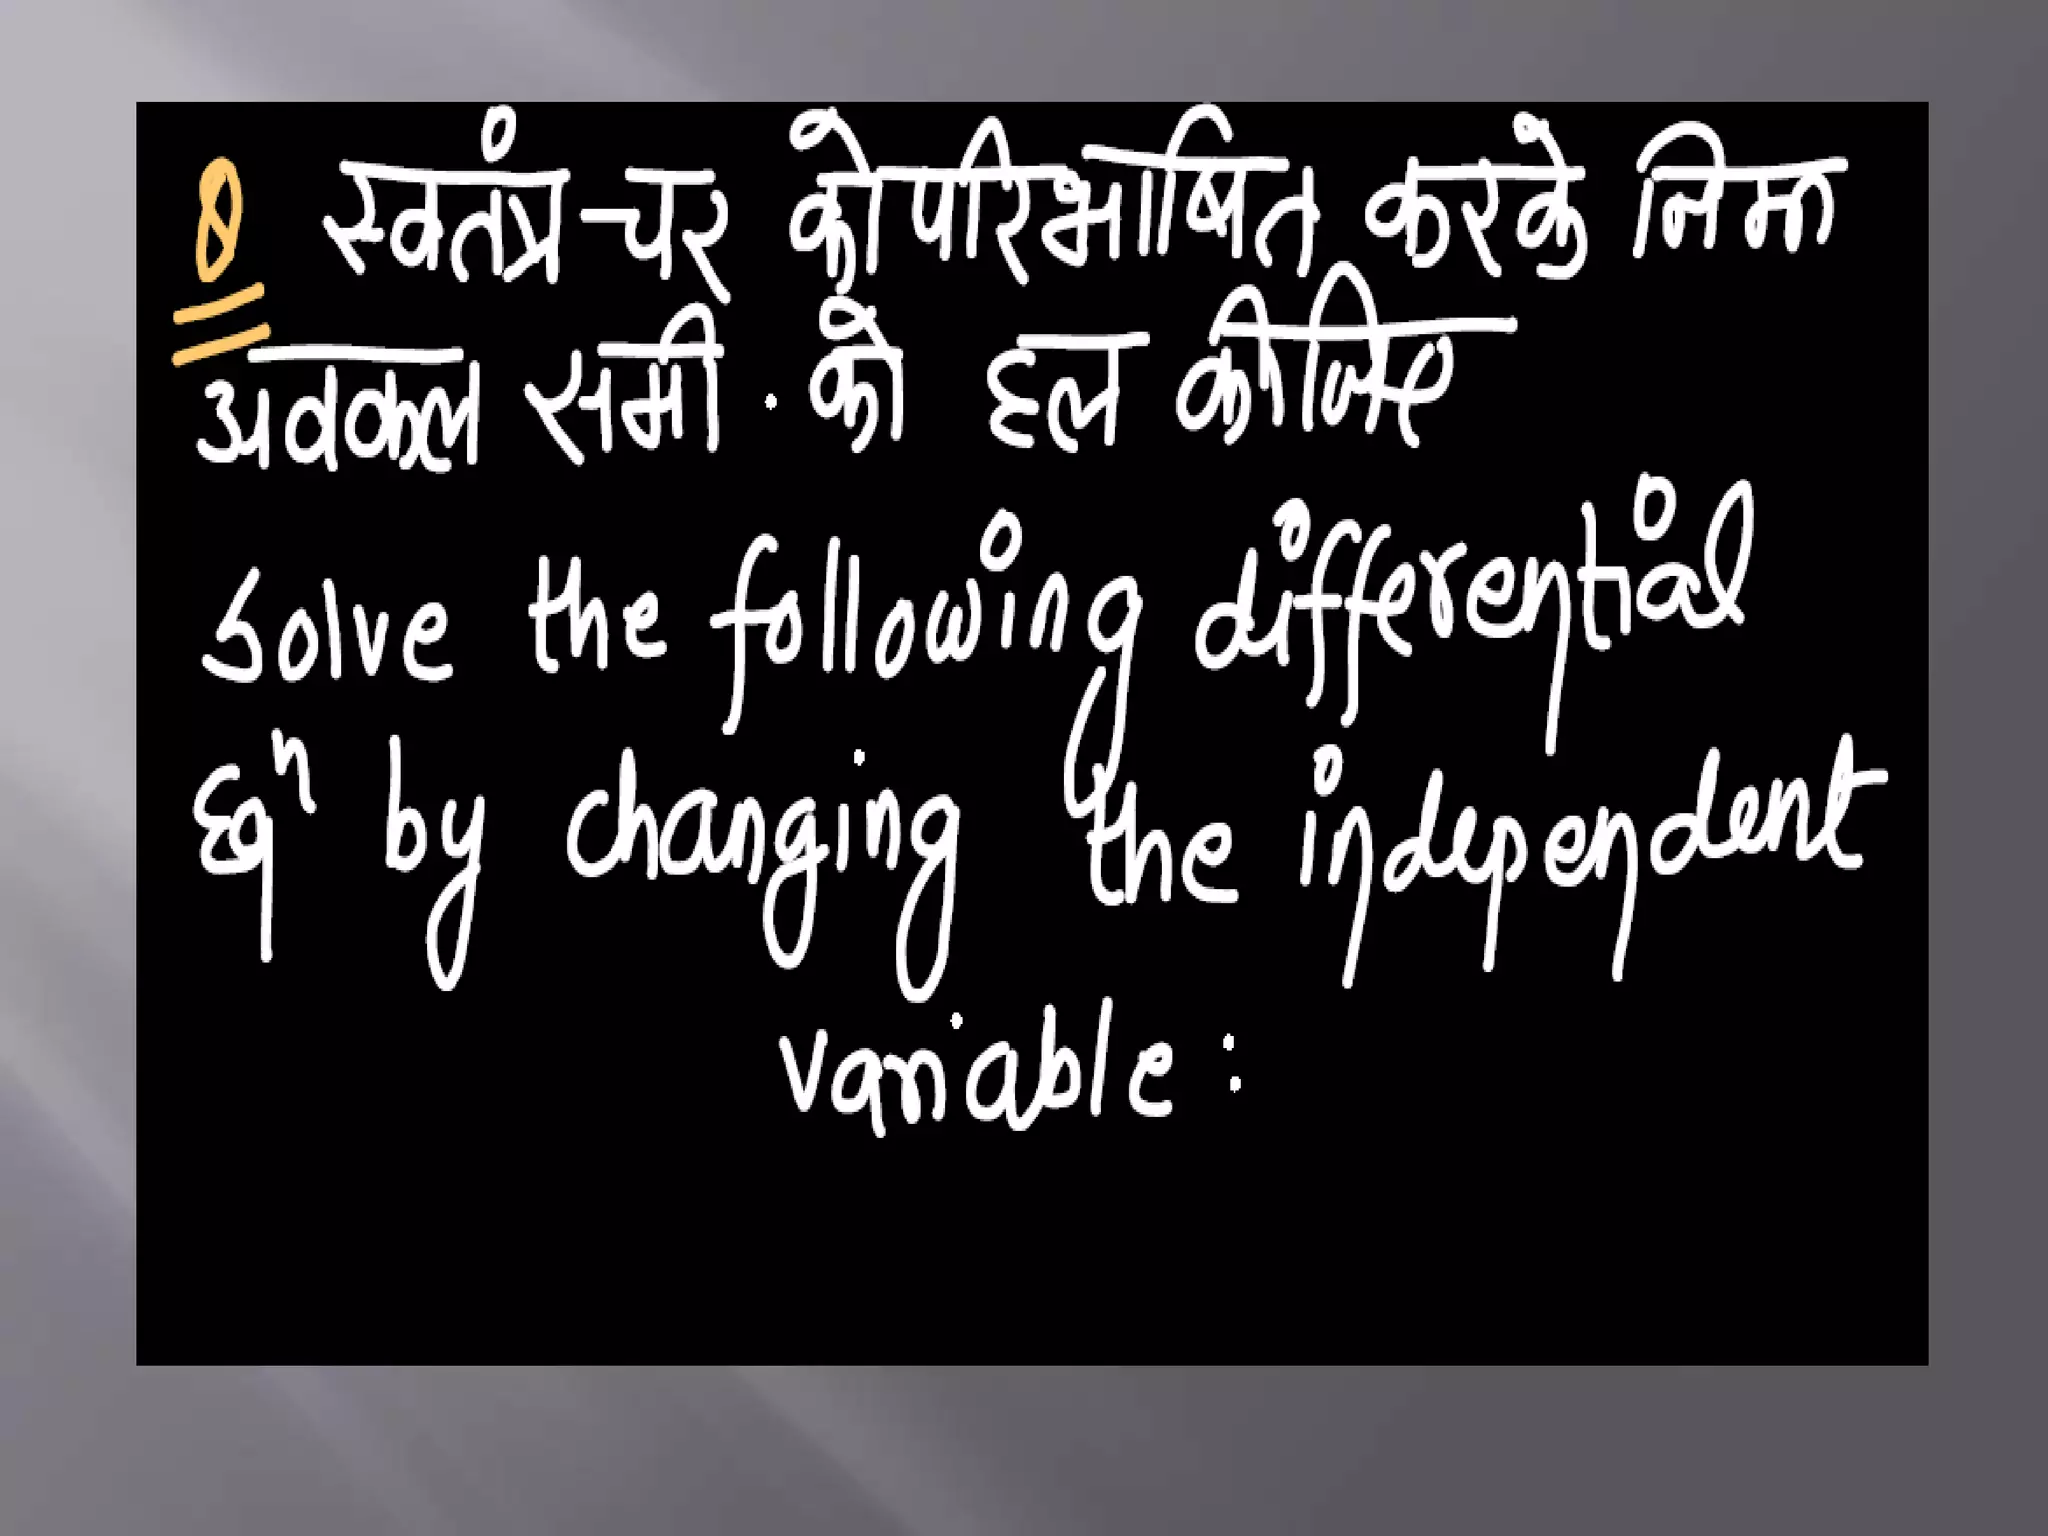 Q स्वतंत्र-चर को परिभाषित करके निम्न
अवकल समी. को हल कीजिए
Solve the following differential
Eqⁿ by changing the independent
variable :